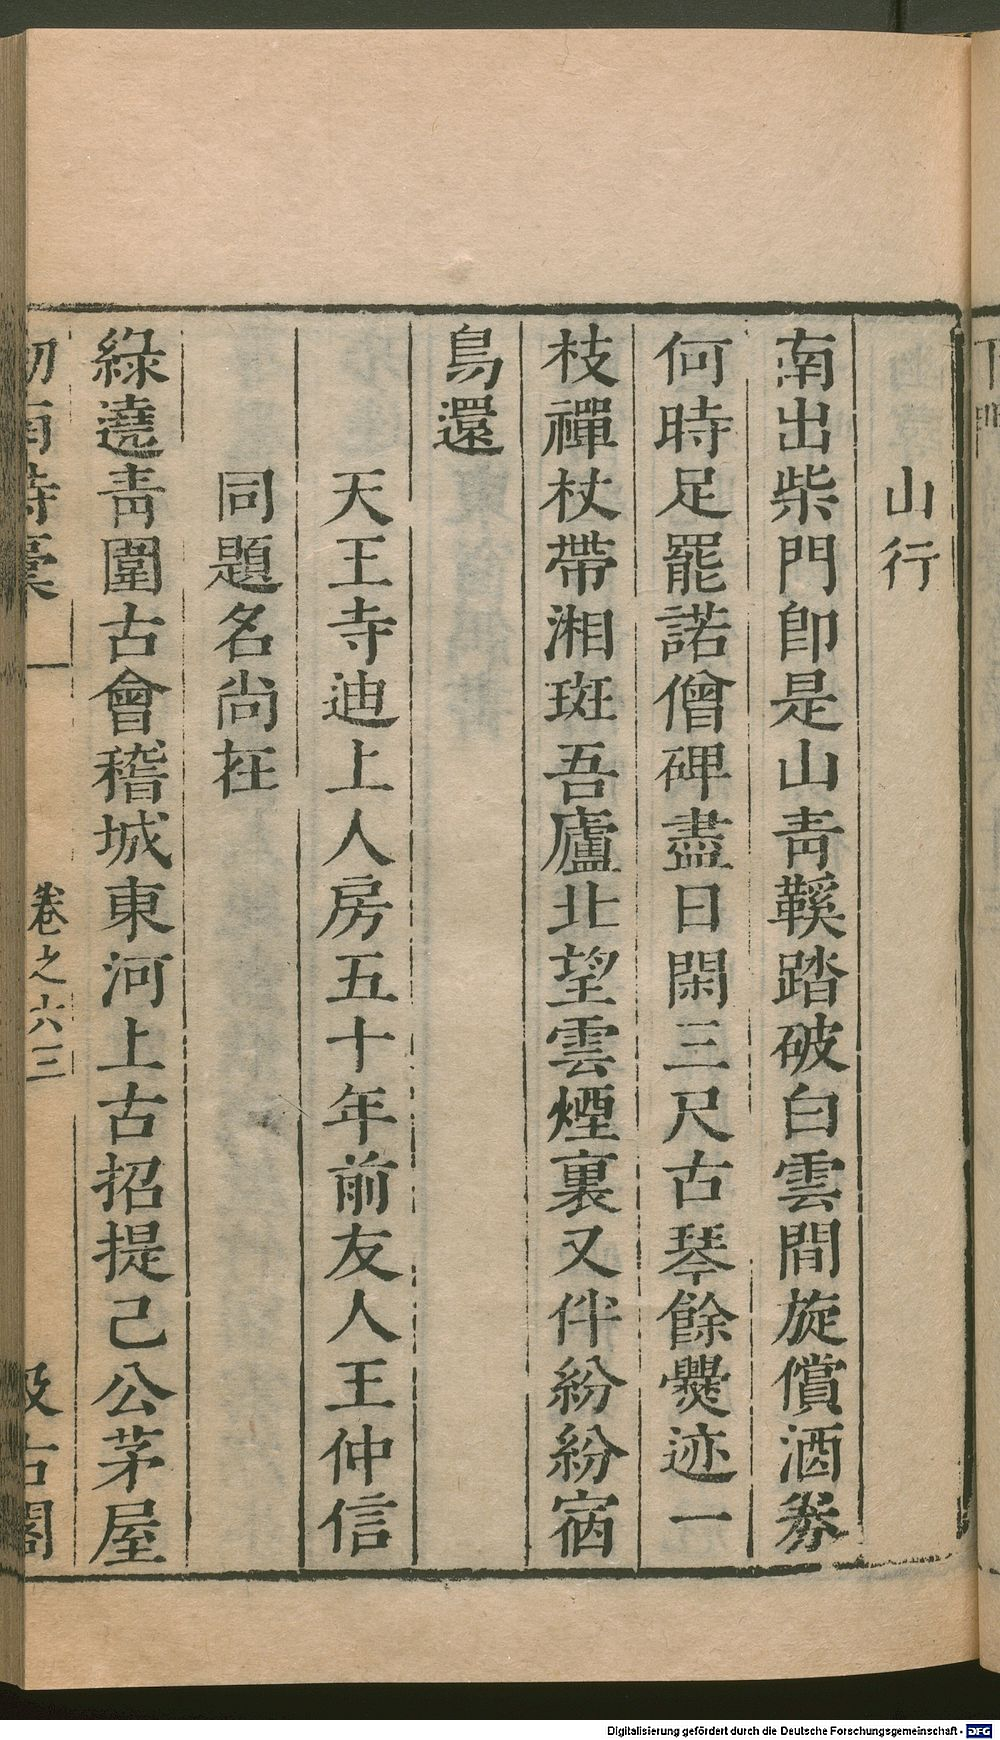 山行
南出柴門卽是山青鞵踏破白雲間旋償酒券
何時足罷諾僧碑盡日閑三尺古琴餘爨迹一
枝禪杖帶湘斑吾廬北望雲煙裏又伴紛紛宿
鳥還
天王寺迪上人房五十年前友人王仲信
同題名尚在
綠遶青圍古會稽城東河上古招提己公茅屋
劒南詩稾
卷之六三
汲古閣
Digitalisierung gefördert durch die Deutsche Forschungsgemeinschaft - DFG